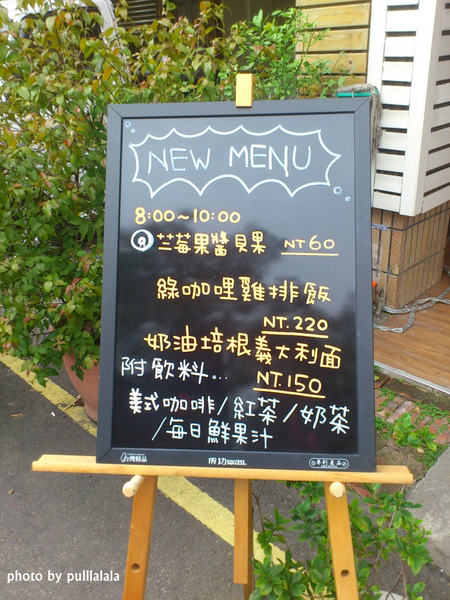 NEW MENU
8:00~10:00
苺果醬貝果 NT60
綠咖哩雞排飯
NT.220
奶油培根義大利面
附飲料... NT.150
美式咖啡/紅茶/奶茶
/每日鮮果汁
成功 SUCCESS.
專利產品
photo by pulllalala